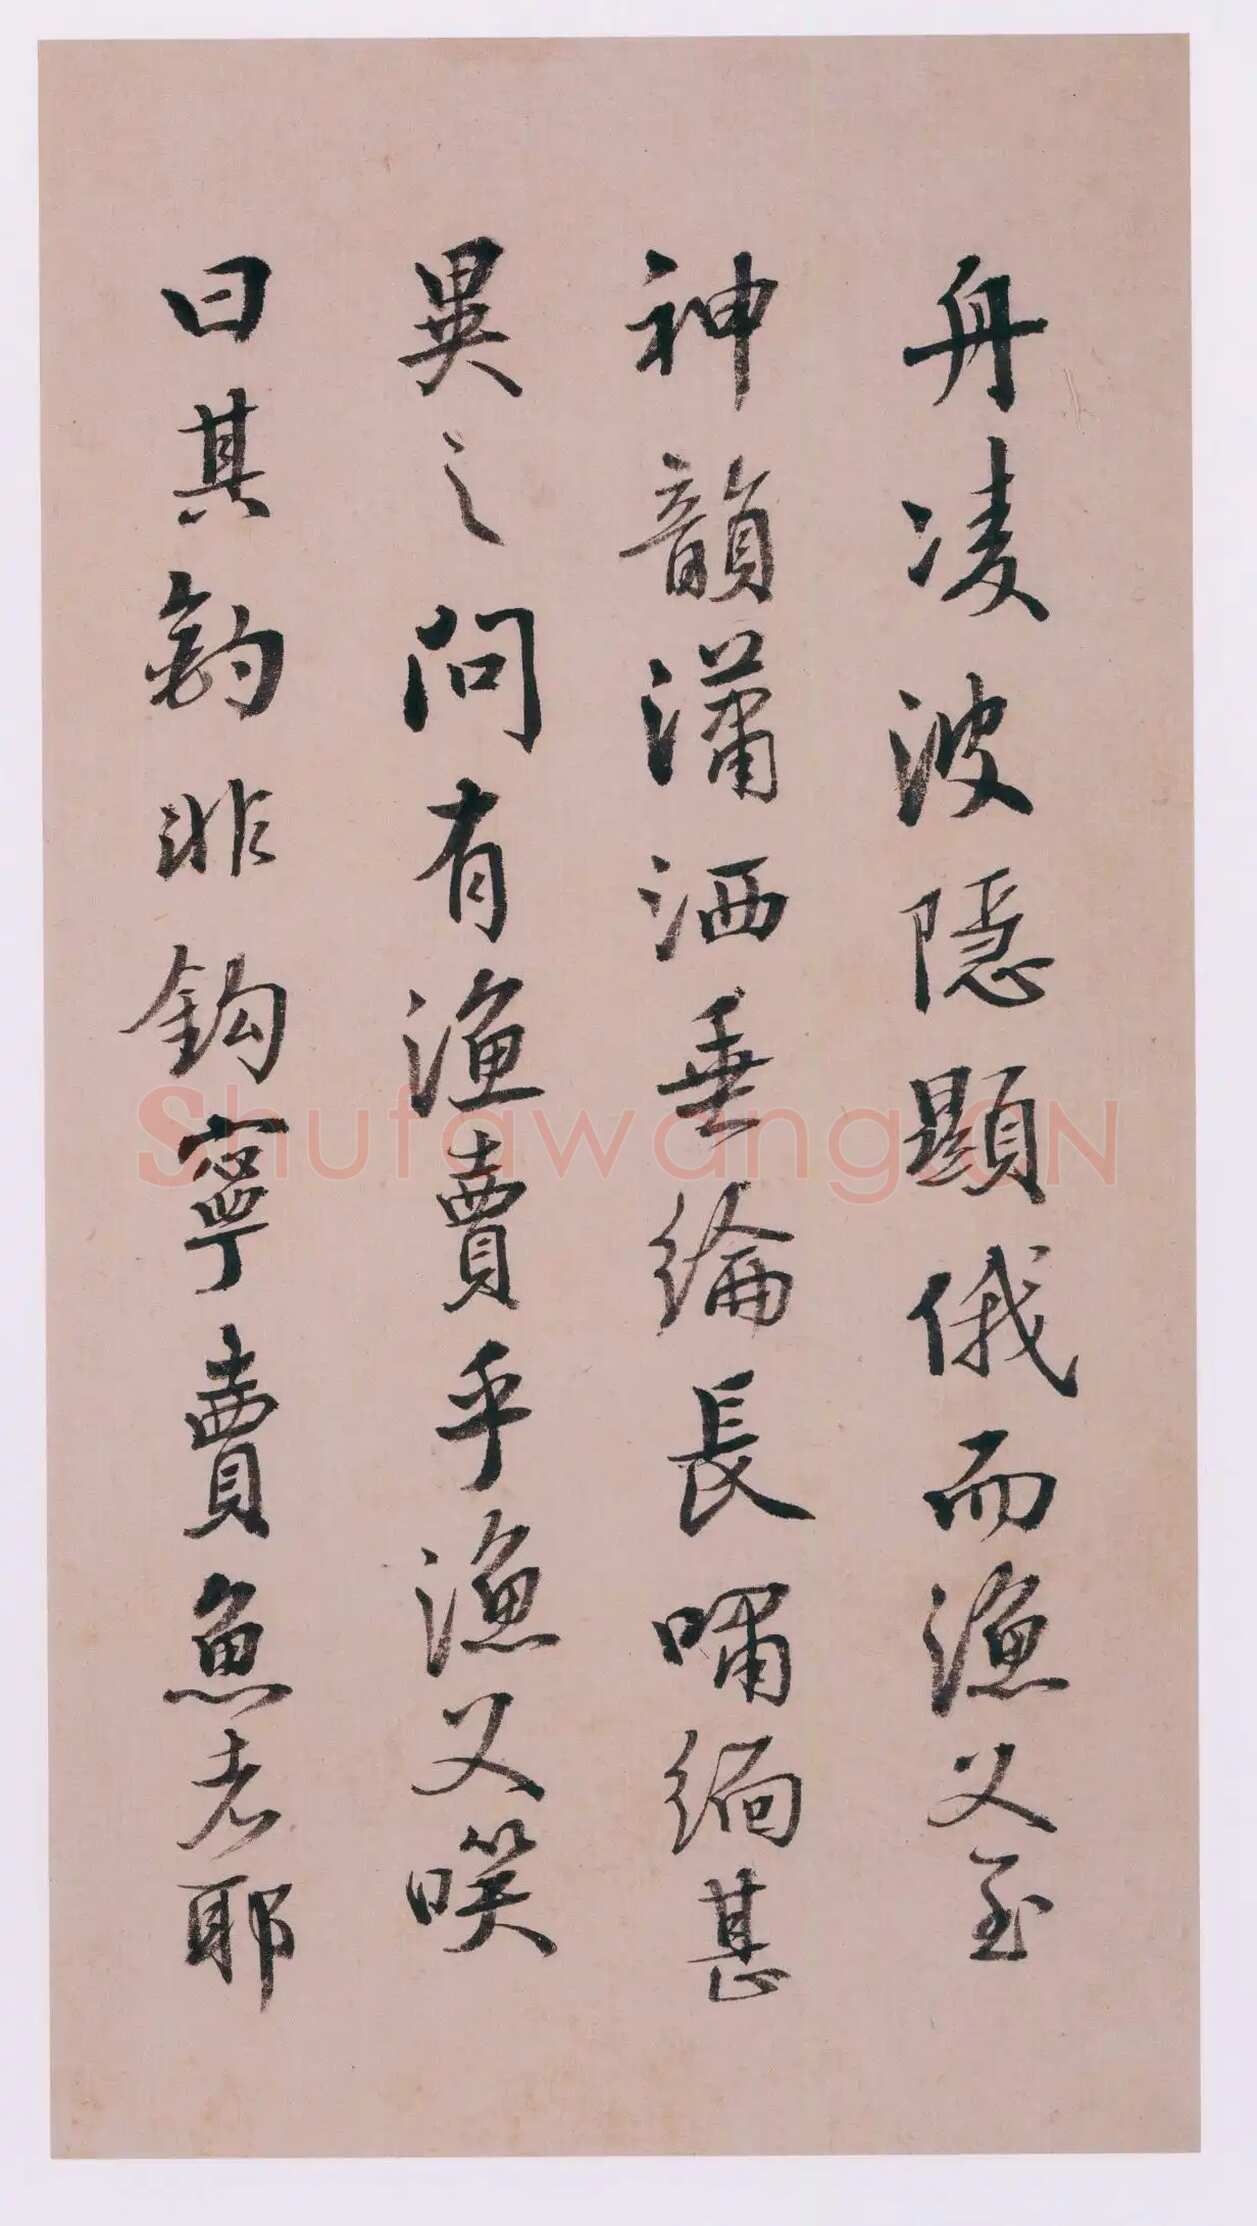 舟凌波隱顯俄而漁父至
神韻瀟洒垂綸長嘯緬甚
異之問有漁賣乎漁父笑
曰其釣非鈎寧賣魚者耶
Shufawang.CN